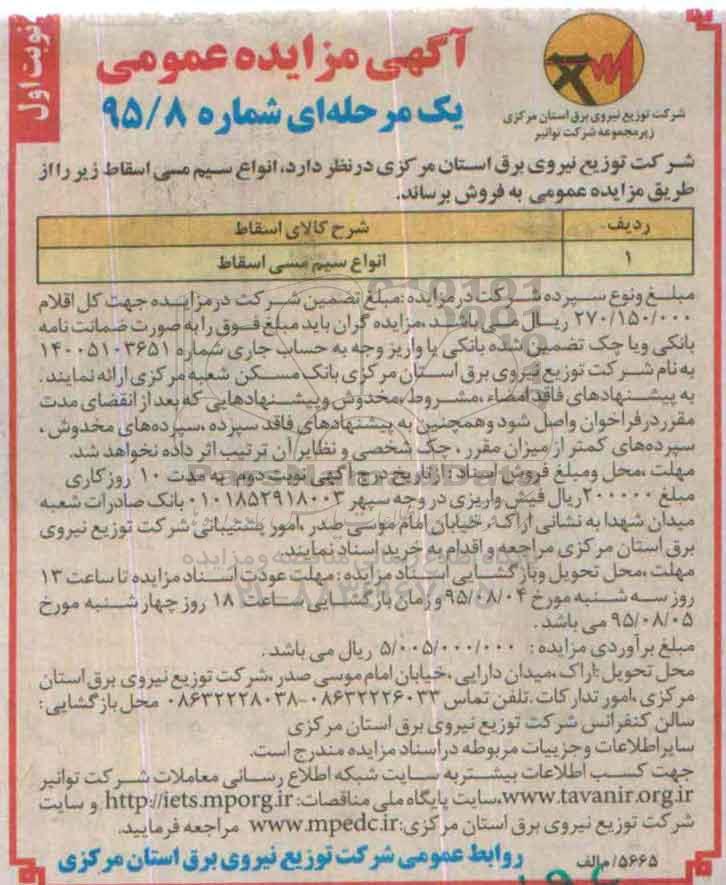 نوبت اول
آگهی مزایده عمومی
یک مرحله‌ای شماره ۹۵/۸
شرکت توزیع نیروی برق استان مرکزی
زیرمجموعه شرکت توانیر
شرکت توزیع نیروی برق استان مرکزی درنظر دارد، انواع سیم مسی اسقاط زیر را از
طریق مزایده عمومی به فروش برساند.
ردیف شرح کالای اسقاط
۱ انواع سیم مسی اسقاط
مبلغ ونوع سپرده شرکت در مزایده: مبلغ تضمین شرکت در مزایده جهت کل اقلام
۲۷۰/۱۵۰/۰۰۰ ریال می باشد، مزایده گران باید مبلغ فوق را به صورت ضمانت نامه
بانکی ویا چک تضمین شده بانکی یا واریز وجه به حساب جاری شماره ۱۴۰۰۵۱۰۳۶۵۱
به نام شرکت توزیع نیروی برق استان مرکزی بانک مسکن شعبه مرکزی ارائه نمایند.
به پیشنهادهای فاقد امضاء، مشروط، مخدوش وپیشنهادهایی که بعد از انقضای مدت
مقرر در فراخوان واصل شود وهمچنین به پیشنهادهای فاقد سپرده، سپرده‌های مخدوش،
سپرده‌های کمتر از میزان مقرر، چک شخصی و نظایر آن ترتیب اثر داده نخواهد شد.
مهلت، محل ومبلغ فروش اسناد: از تاریخ درج آگهی نوبت دوم به مدت ۱۰ روز کاری
مبلغ ۲۰۰۰۰۰ ریال فیش واریزی در وجه سپهر ۰۱۰۱۸۵۲۹۱۸۰۰۳ بانک صادرات شعبه
میدان شهدا به نشانی اراک، خیابان امام موسی صدر، امور پشتیبانی شرکت توزیع نیروی
برق استان مرکزی مراجعه و اقدام به خرید اسناد نمایند.
مهلت، محل تحویل وبازگشایی اسناد مزایده: مهلت عودت اسناد مزایده تا ساعت ۱۳
روز سه شنبه مورخ ۹۵/۰۸/۰۴ و زمان بازگشایی ساعت ۱۸ روز چهار شنبه مورخ
۹۵/۰۸/۰۵ می باشد.
مبلغ برآوردی مزایده: ۵/۰۰۵/۰۰۰/۰۰۰ ریال می باشد.
محل تحویل: اراک، میدان دارایی، خیابان امام موسی صدر، شرکت توزیع نیروی برق استان
مرکزی، امور تدارکات. تلفن تماس ۰۸۶۳۲۲۲۶۰۳۳-۰۸۶۳۲۲۲۸۰۳۸ محل بازگشایی:
سالن کنفرانس شرکت توزیع نیروی برق استان مرکزی
سایر اطلاعات وجزییات مربوطه در اسناد مزایده مندرج است.
جهت کسب اطلاعات بیشتر به سایت شبکه اطلاع رسانی معاملات شرکت توانیر
www.tavanir.org.ir، سایت پایگاه ملی مناقصات: http://iets.mporg.ir و سایت
شرکت توزیع نیروی برق استان مرکزی: www.mpedc.ir مراجعه فرمایید.
۵۶۶۵/م الف
روابط عمومی شرکت توزیع نیروی برق استان مرکزی